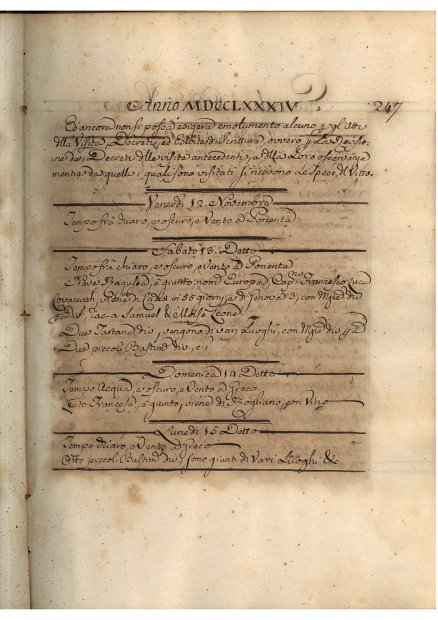 Anno MDCCLXXXIV 247
Ed ancora non si possa esigere emolumento alcuno p gl'Atti
della Visita, Decreti, ed Esibite di Scritture ovvero p La Revisio-
ne de' Decreti della visita antecedente, e della Loro osservanza
mentre da quelli i quali sono visitati si ricevono Le Spese del Vitto.
Venerdi 12. Novembre
Tempo frà chiaro, e oscuro, e Vento a Ponente
Sabato 13. Detto
Tempo frà chiaro, e oscuro, e Vento a Ponente
Nave Ragusea, è giunta, nom Europa, Cap.no Francesco
viene di in 55 giorni, e di Genova 3, con
Samuel & Leone
Due Tartane div, vengono di vari Luoghi, con
Due piccoli Bastim div, e
Domenica 14 Detto
Tempo Acqua, e oscuro, e Vento a Greco
Francese, è giunto, viene di Bogliano, con Vino
Lunedi 15 Detto
Tempo chiaro, e Vento Greco
Otto piccoli Bastim div, sono giunti di Vari Luoghi &c